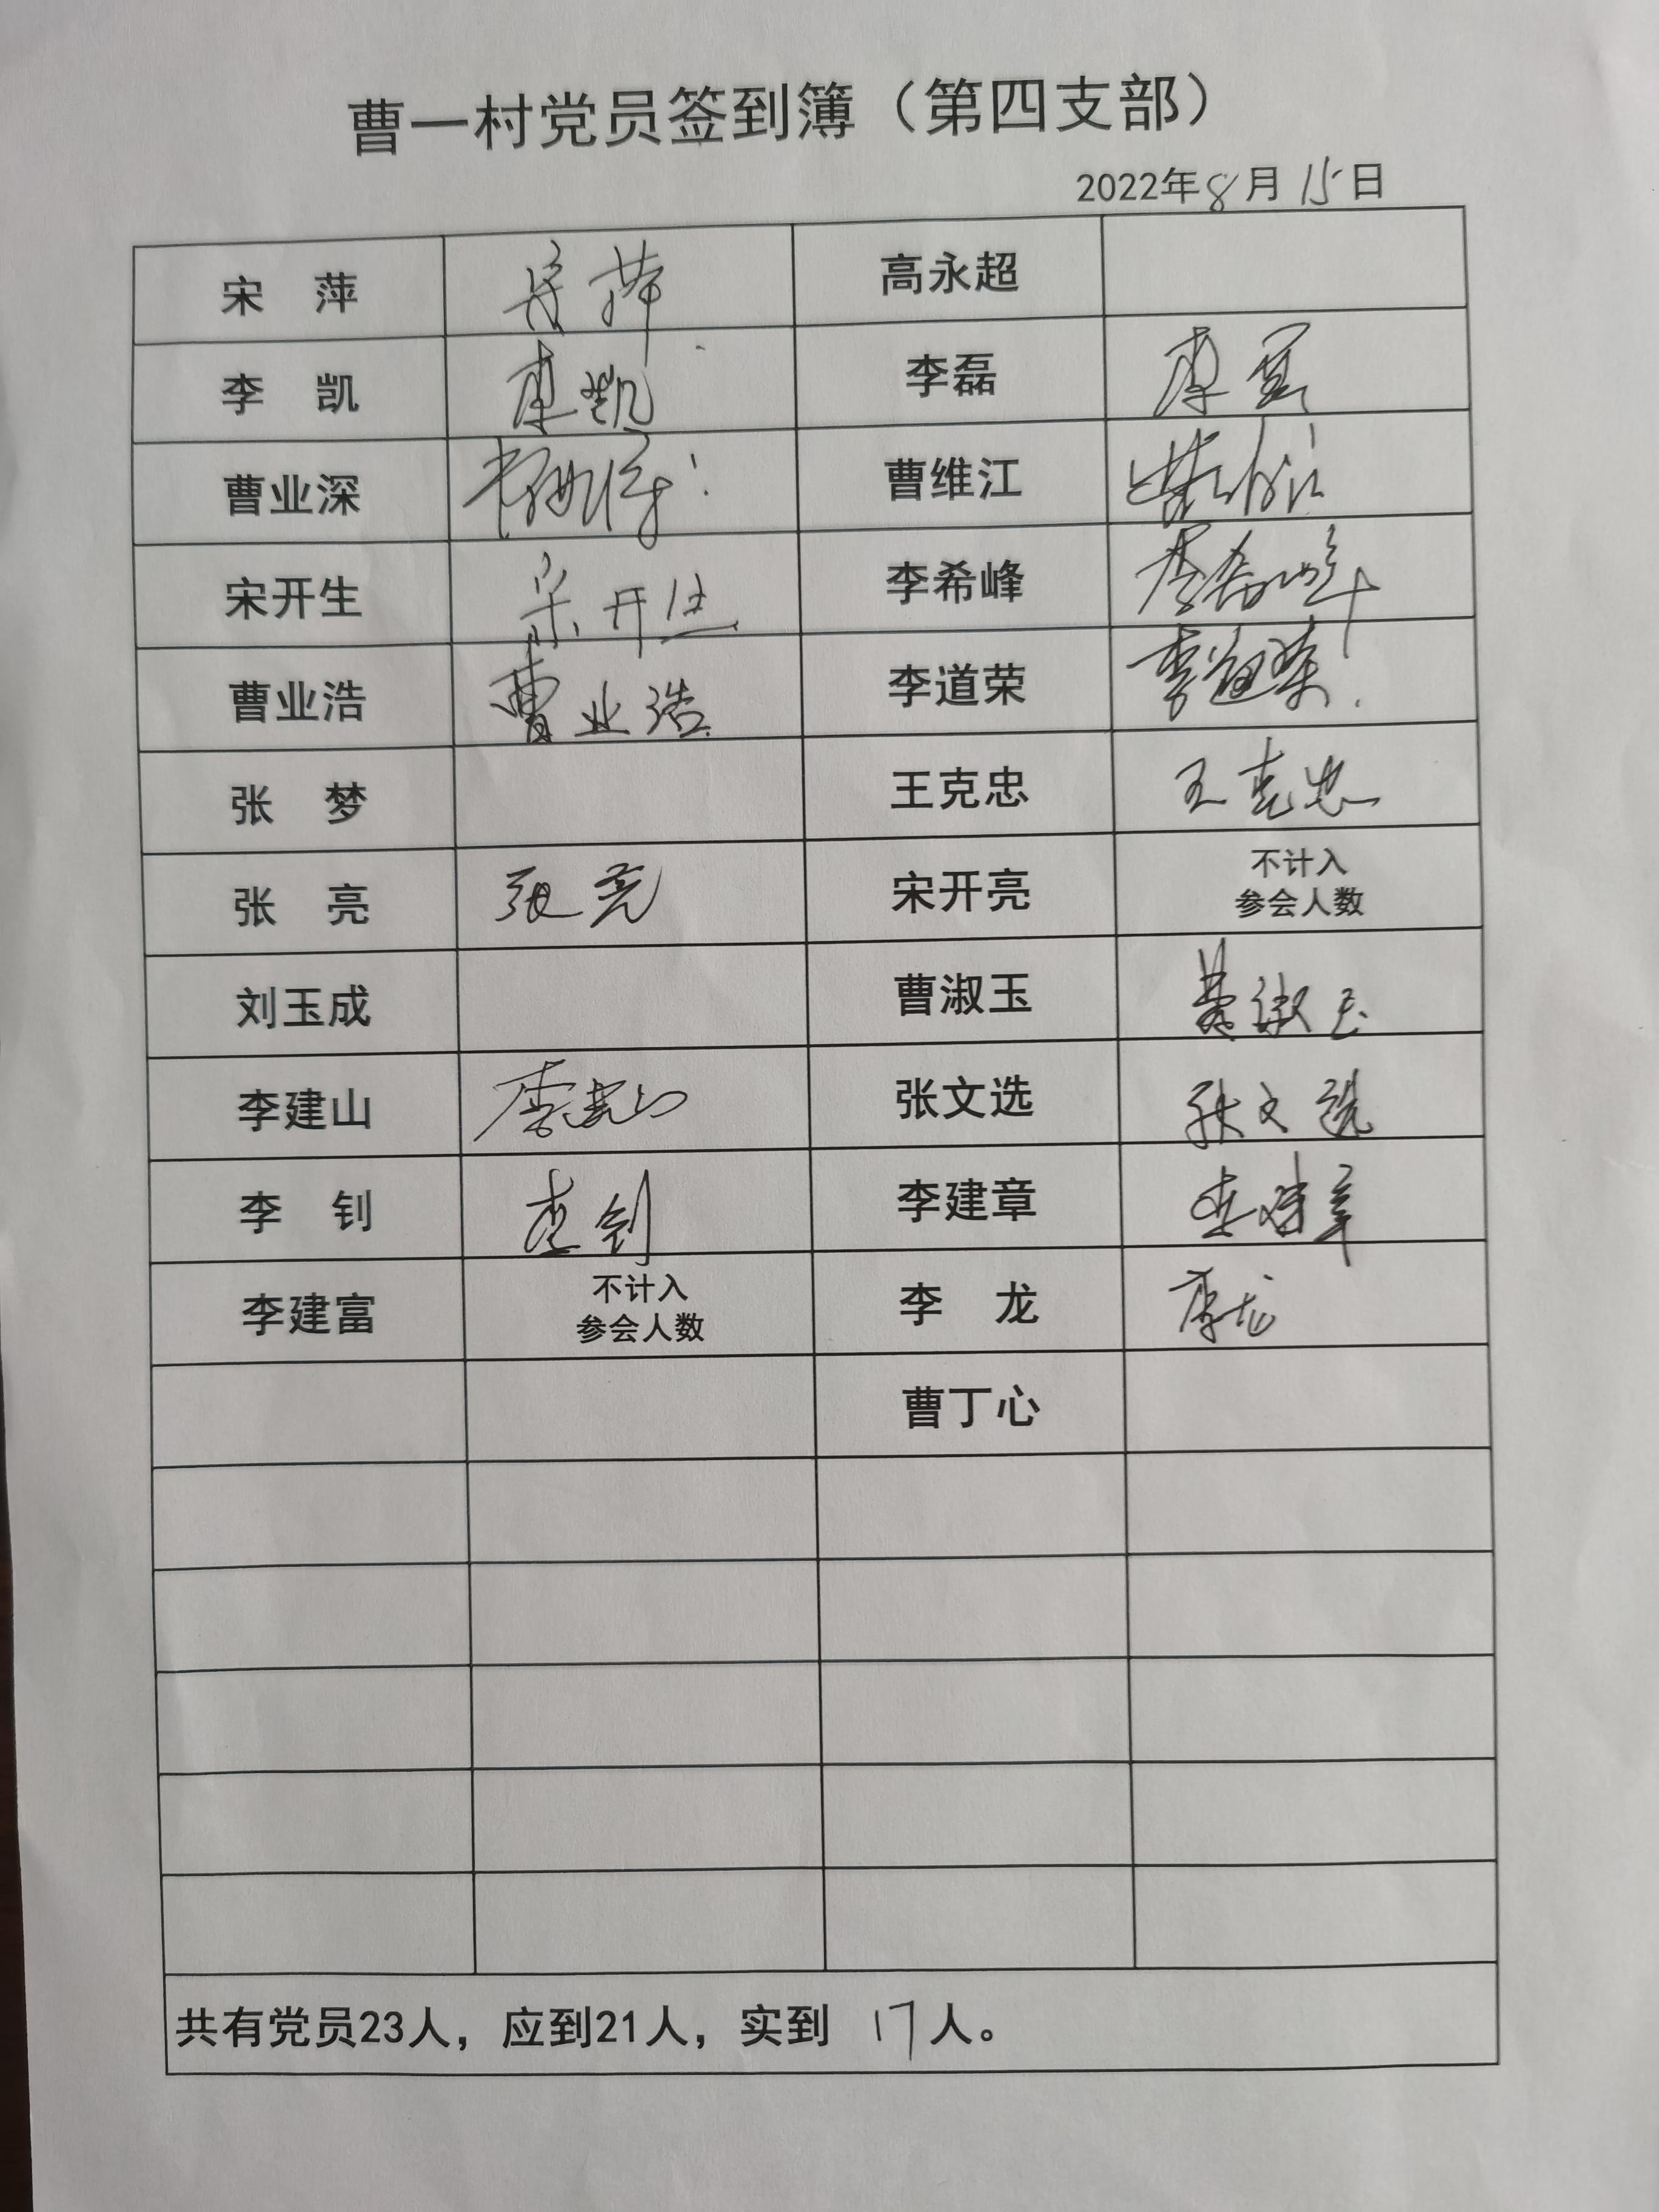 曹一村党员签到簿（第四支部）
2022年8月15日
宋 萍 宋萍 高永超
李 凯 李凯 李磊 李磊
曹业深 曹维江
宋开生 宋开生 李希峰 李希峰
曹业浩 曹业浩 李道荣 李道荣
张 梦 王克忠 王克忠
张 亮 张亮 宋开亮 不计入
参会人数
刘玉成 曹淑玉 曹淑玉
李建山 李建山 张文选 张文选
李 钊 李钊 李建章 李建章
李建富 不计入
参会人数 李 龙 李龙
曹丁心
共有党员23人，应到21人，实到 17人。